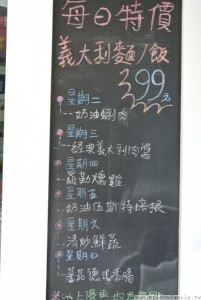 每日特價
義大利麵/飯
399元
星期二
奶油蜊肉
星期三
經典義大利肉醬
星期四
羅勒燻雞
星期五
奶油伍斯特培根
星期六
清炒鮮蔬
星期日
蕃茄德式香腸